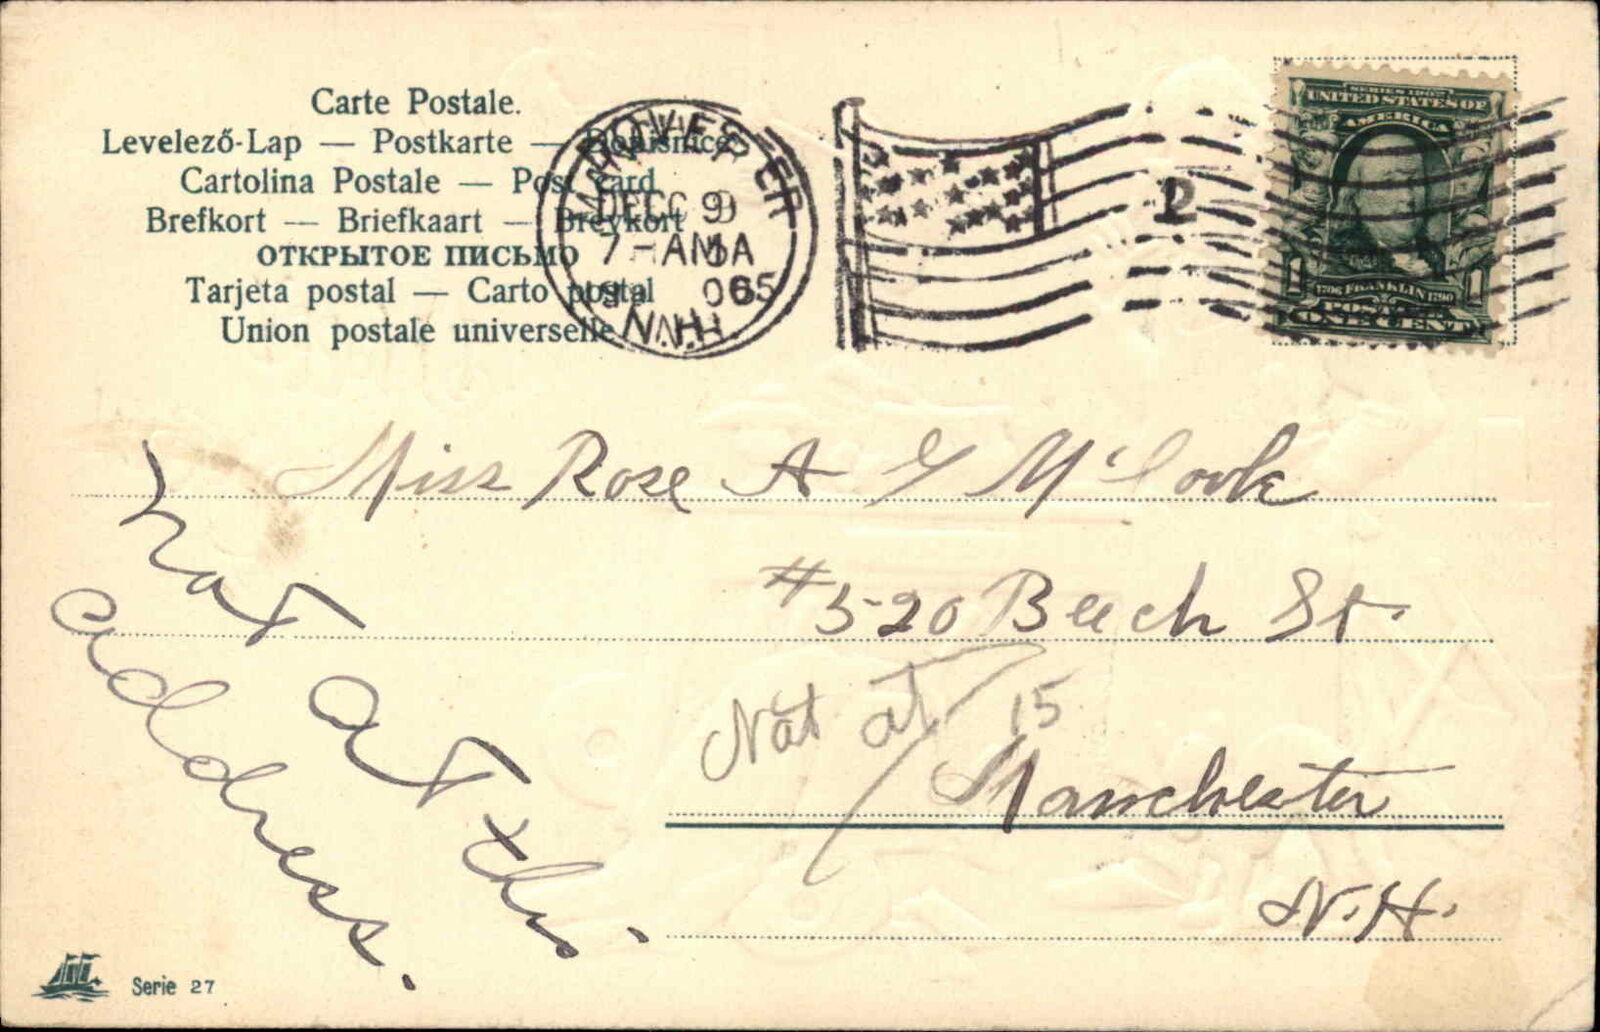 Carte Postale.
Levelező-Lap — Postkarte — Dopisnice
Cartolina Postale — Post card
Brefkort — Briefkaart — Brevkort
ОТКРЫТОЕ ПИСЬМО
Tarjeta postal — Carto postal
Union postale universelle
DEC 9
7-AM
N.H.
2
SERIES 1902
UNITED STATES OF
AMERICA
1706 FRANKLIN 1790
POSTAGE
ONE CENT
Miss Rose A G McCook
#520 Beech St.
Not at 15
Manchester
N.H.
Not at this
address.
Serie 27